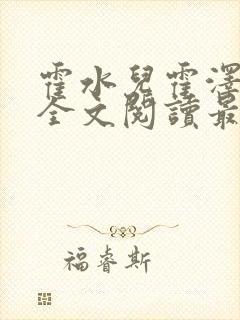 霍水兒霍澤
全文閱讀最
福睿斯